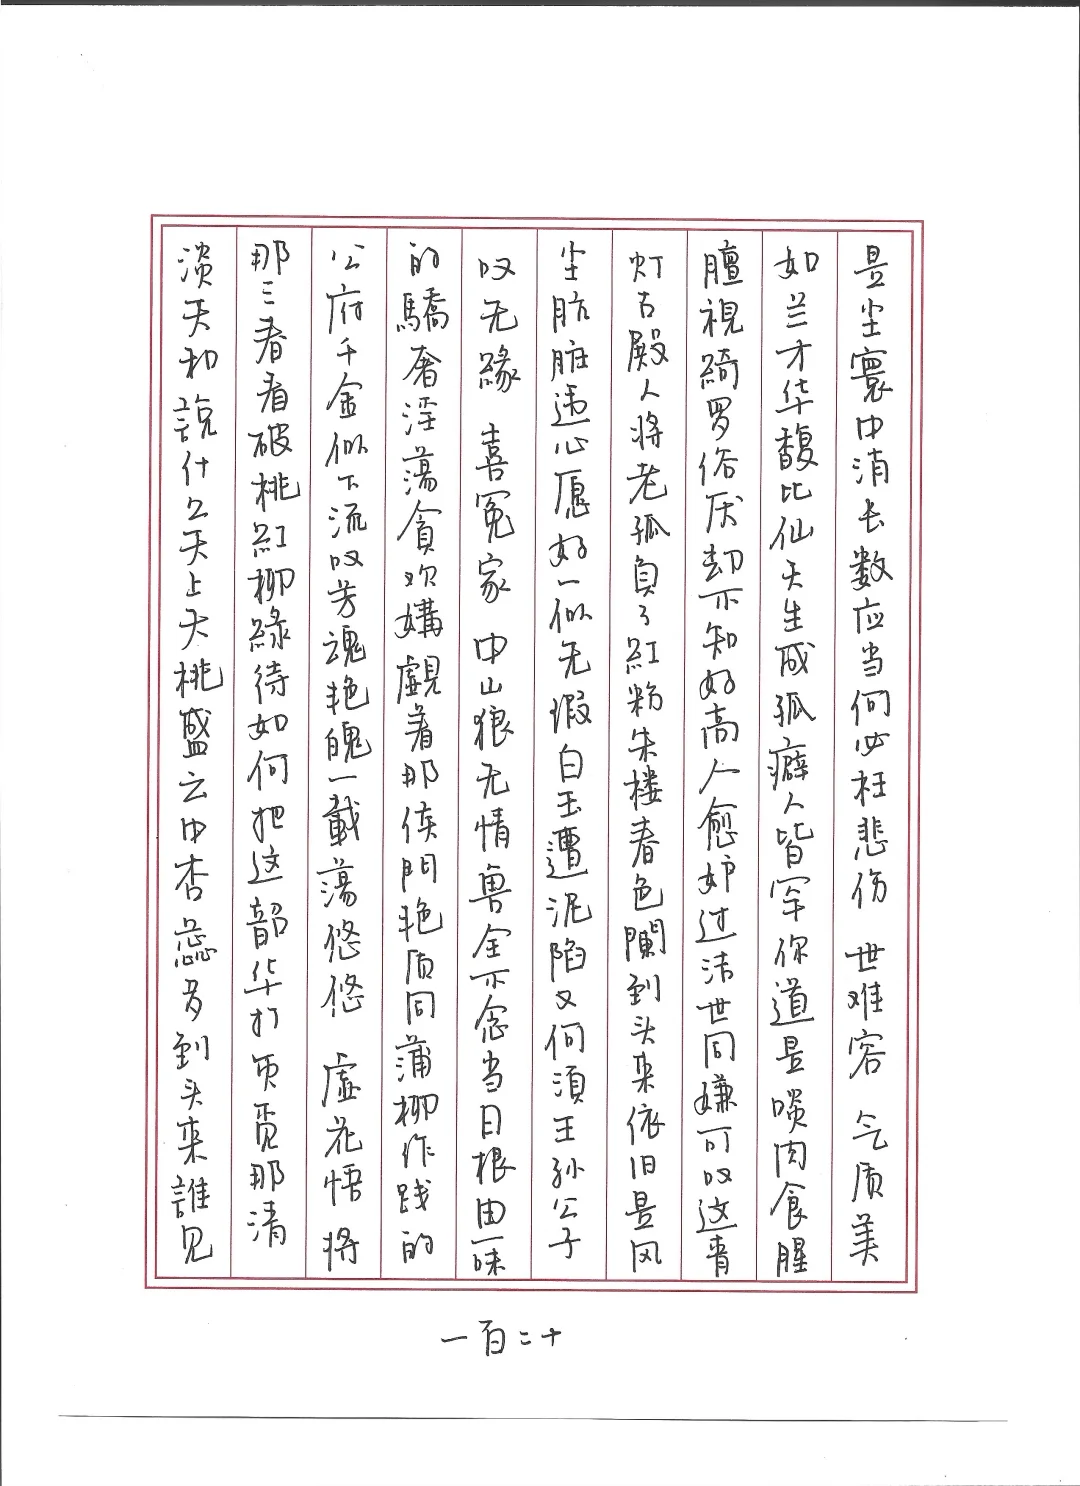 是尘寰中消长数应当何必枉悲伤 世难容 气质美
如兰才华馥比仙天生成孤癖人皆罕你道是啖肉食腥
膻視綺罗俗厌却不知好高人愈妒过洁世同嫌可叹这青
灯古殿人将老孤負了紅粉朱楼春色闌到头来依旧是风
尘肮脏违心愿好一似无瑕白玉遭泥陷又何須王孙公子
叹无緣 喜冤家 中山狼无情兽全不念当日根由一味
的驕奢淫蕩貪欢媾覷着那侯門艳质同蒲柳作践的
公府千金似下流叹芳魂艳魄一載蕩悠悠 虛花悟 将
那三春看破桃紅柳綠待如何把这韶华打灭覓那清
淡天和說什么天上夭桃盛云中杏蕊多到头来誰見
一百二十